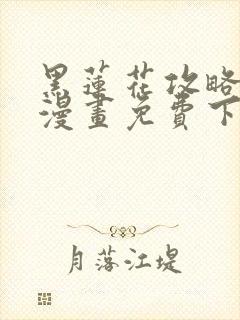 黑蓮花攻略
漫畫免費下
月落江堤